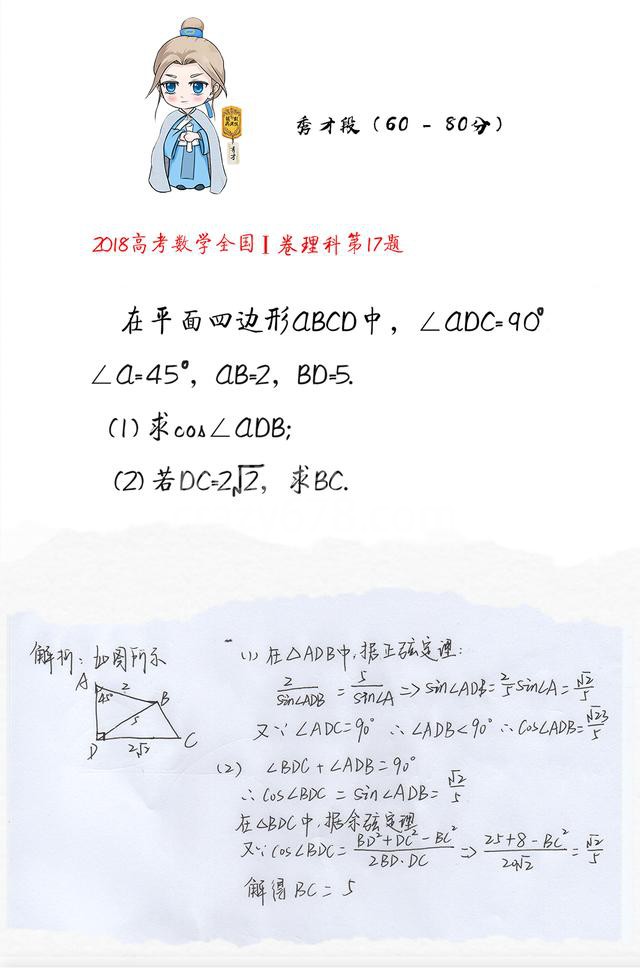 秀才
秀才段（60 - 80分）
2018高考数学全国Ⅰ卷理科第17题
在平面四边形ABCD中，∠ADC=90°
∠A=45°，AB=2，BD=5.
(1)求cos∠ADB;
(2)若DC=2√2，求BC.
解析：如图所示
A
45°
2
B
5
D
2√2
C
(1) 在△ADB中,据正弦定理:
2/sin∠ADB = 5/sin∠A => sin∠ADB = 2/5 sin∠A = √2/5
又∵ ∠ADC=90° ∴∠ADB<90° ∴cos∠ADB=√23/5
(2) ∠BDC + ∠ADB = 90°
∴ cos∠BDC = sin∠ADB = √2/5
在△BDC中,据余弦定理
又∵cos∠BDC = BD²+DC²-BC²/2BD·DC => 25+8-BC²/20√2 = √2/5
解得BC = 5